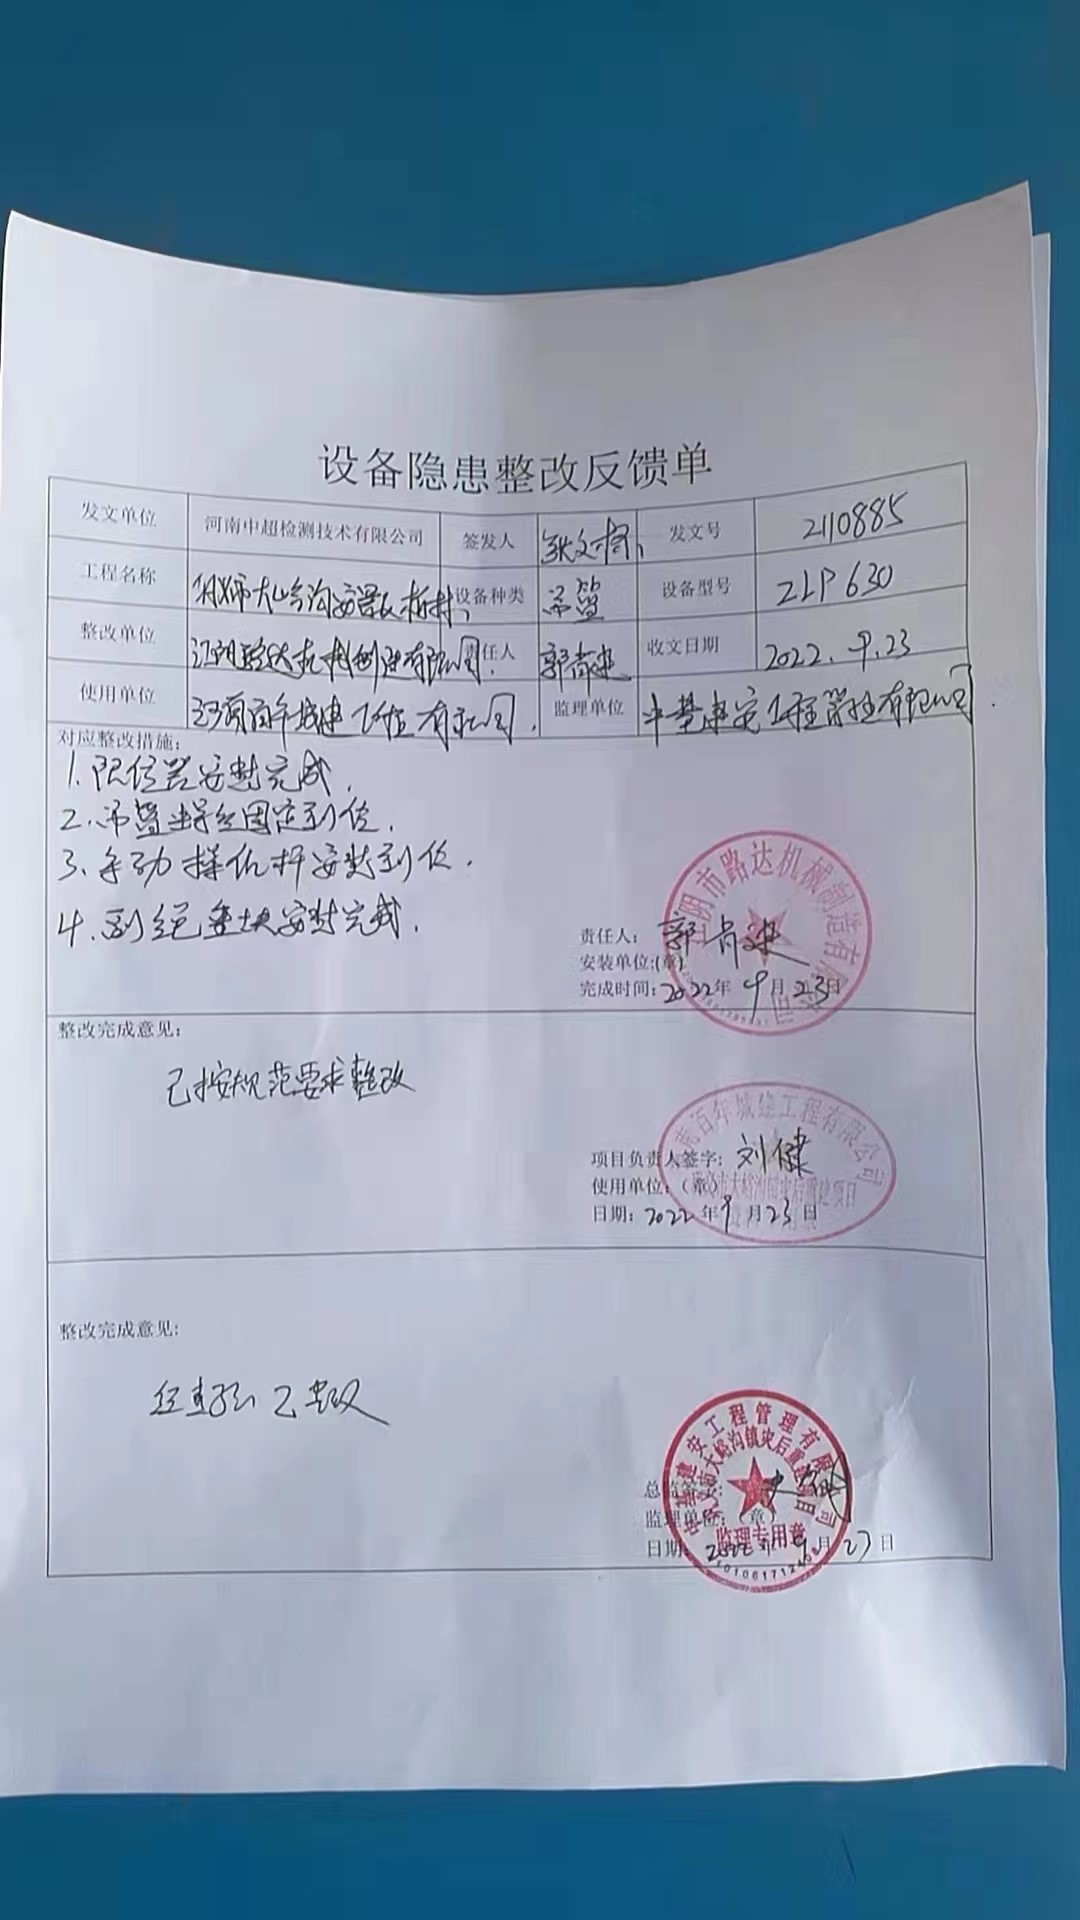 设备隐患整改反馈单
发文单位 河南中超检测技术有限公司 签发人 张文 发文号 2110885
工程名称 大峪沟安置区 设备种类 吊篮 设备型号 ZLP630
整改单位 江阴路达机械制造有限公司 责任人 郭肯建 收文日期 2022.9.23
使用单位 河南百年城建工程有限公司 监理单位 中基建安工程管理有限公司
对应整改措施:
1.限位器安装完成.
2.吊篮 丝固定到位.
3.手动 杆安装到位.
4.副绳重块安装完成.
江阴市路达机械制造有限公司
责任人: 郭肯建
安装单位:(章)
完成时间:2022年9月23日
整改完成意见:
已按规范要求整改
河南百年城建工程有限公司
项目负责人签字: 刘健
使用单位:(章)
日期:2022年9月23日
整改完成意见:
经复验已整改
中基建安工程管理有限公司
大峪沟镇灾后重建项目
总监签字:
监理单位:(章)
监理专用章
日期:2022年9月23日